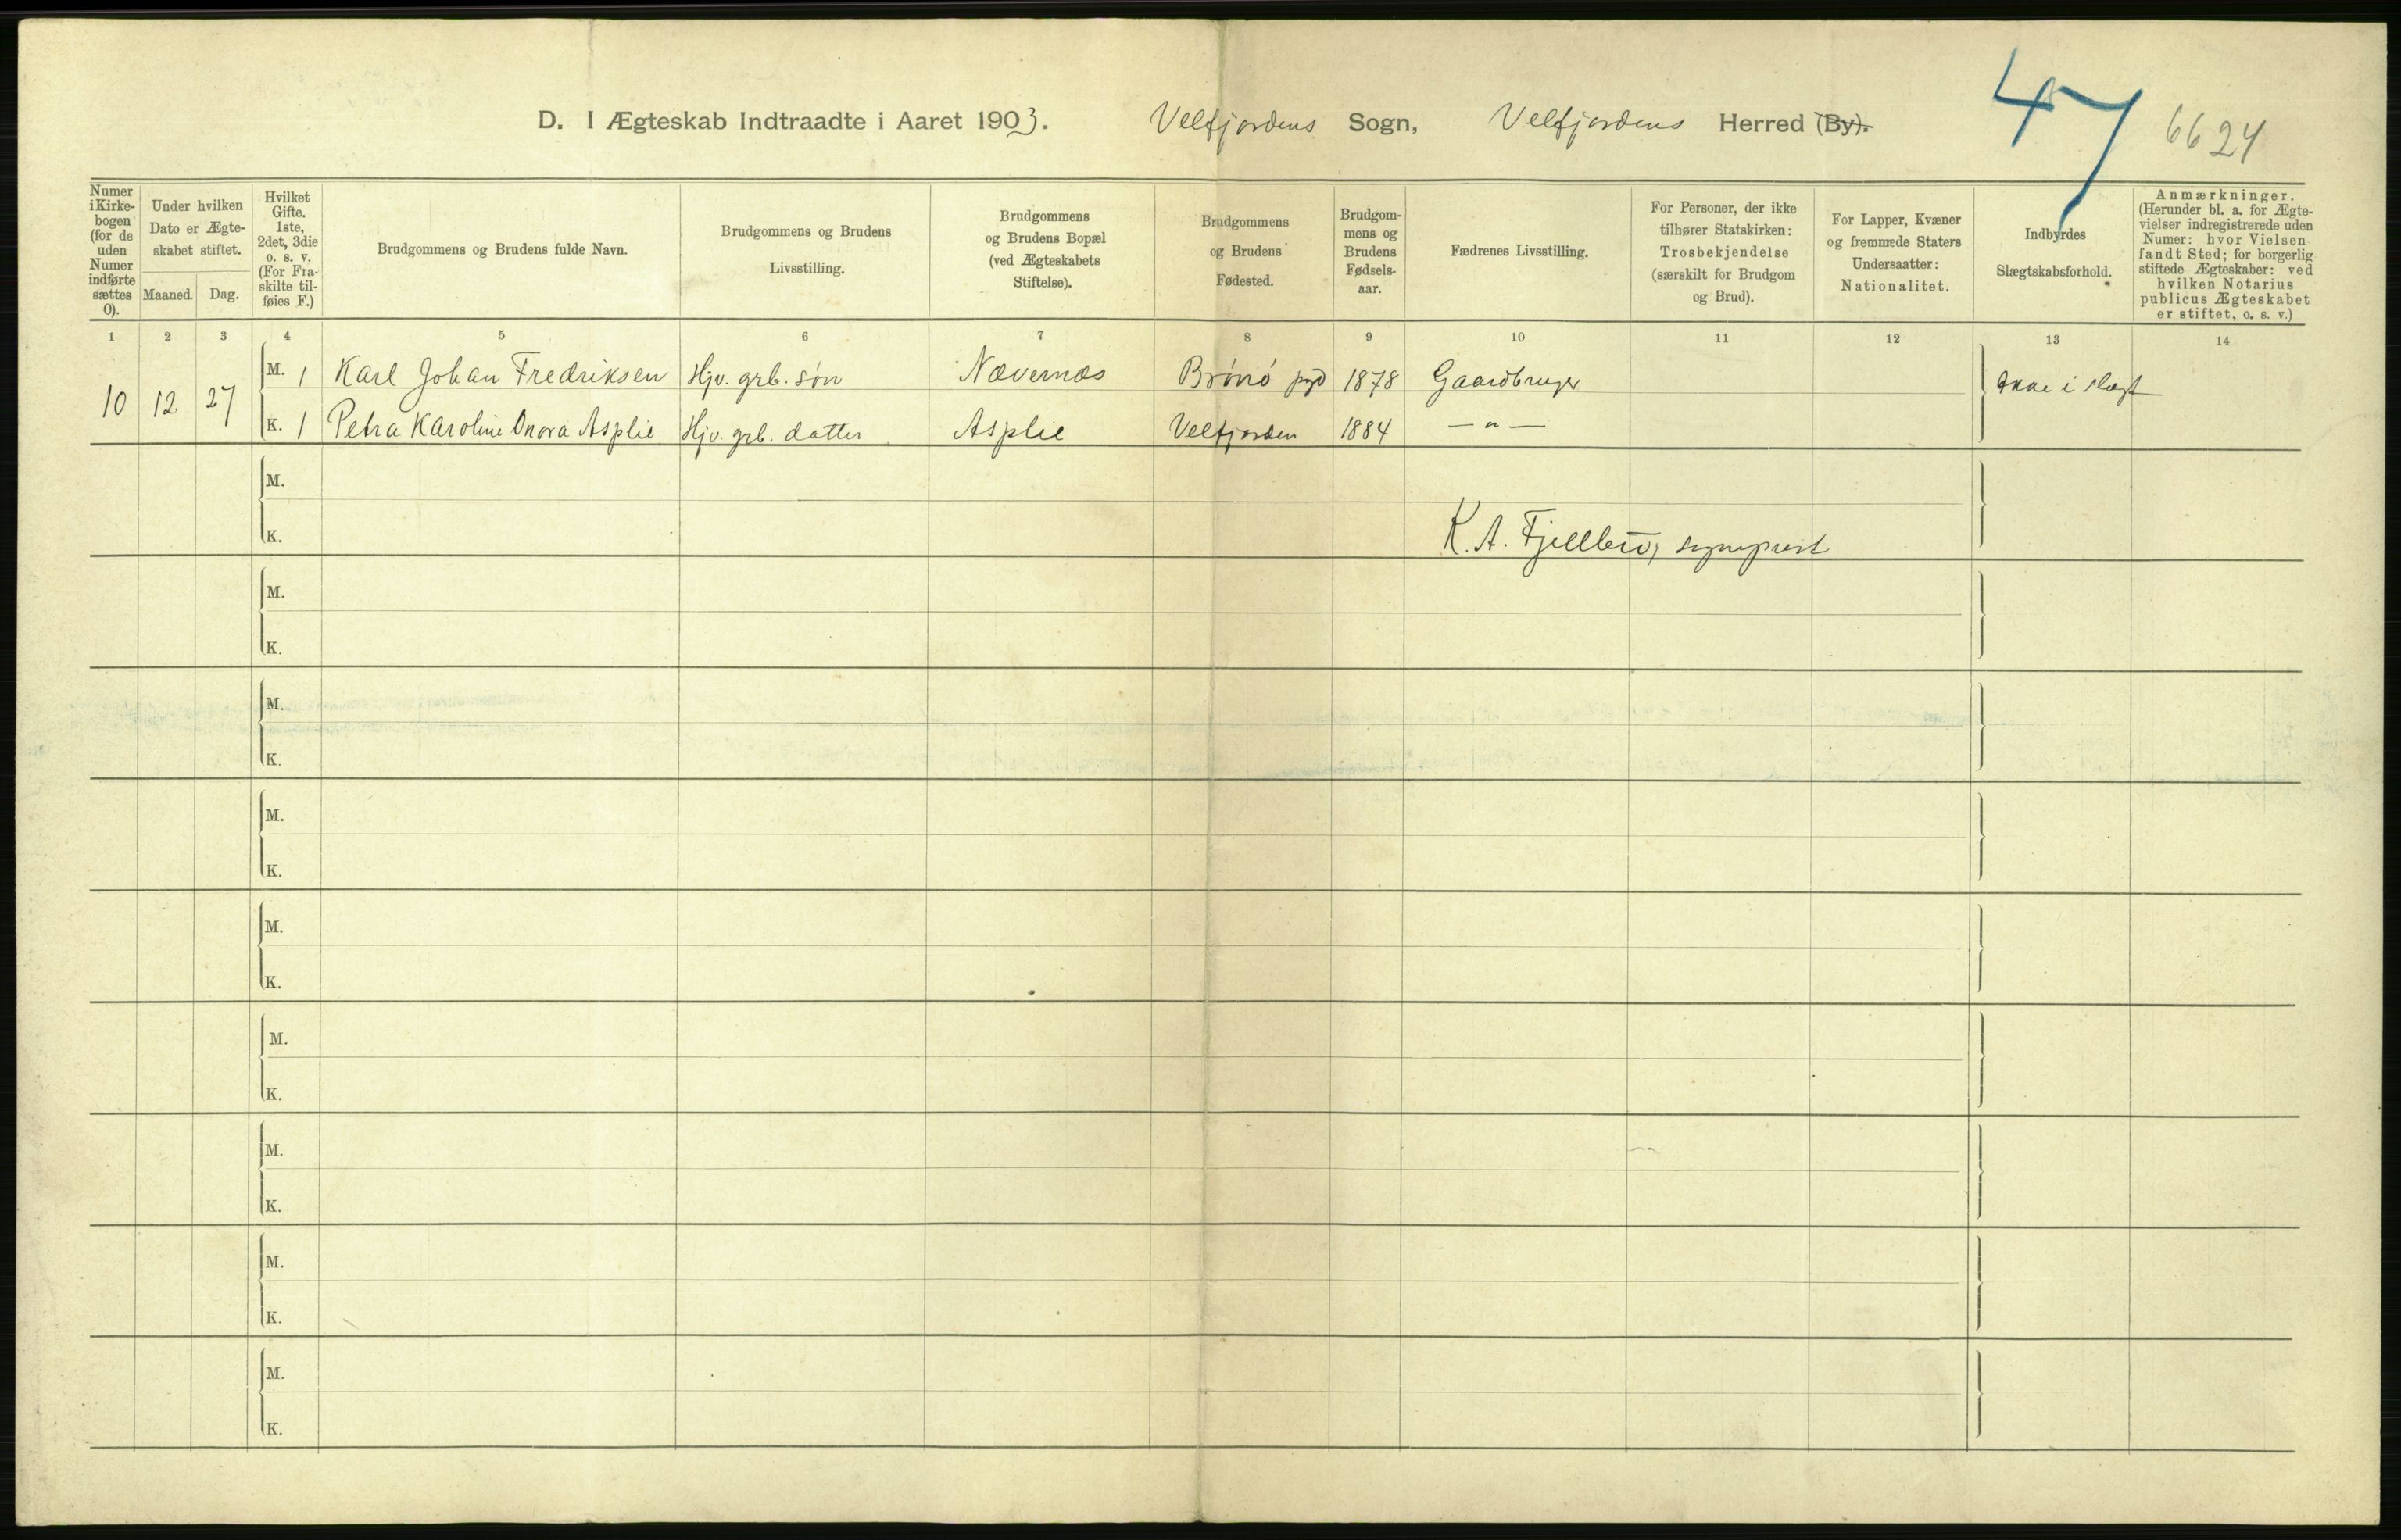 D. I Ægteskab Indtraadte i Aaret 1903. Velfjordens Sogn, Velfjordens Herred (By).
47
6624
Numer i Kirke-bogen (for de uden Numer indførte sættes 0).
Under hvilken Dato er Ægte-skabet stiftet.
Maaned. Dag.
Hvilket Gifte. 1ste, 2det, 3die o. s. v. (For Fra-skilte til-føies F.)
Brudgommens og Brudens fulde Navn.
Brudgommens og Brudens Livsstilling.
Brudgommens og Brudens Bopæl (ved Ægteskabets Stiftelse).
Brudgommens og Brudens Fødested.
Brudgom-mens og Brudens Fødsels-aar.
Fædrenes Livsstilling.
For Personer, der ikke tilhører Statskirken: Trosbekjendelse (særskilt for Brudgom og Brud).
For Lapper, Kvæner og fremmede Staters Undersaatter: Nationalitet.
Indbyrdes Slægtskabsforhold.
Anmærkninger. (Herunder bl. a. for Ægte-vielser indregistrerede uden Numer: hvor Vielsen fandt Sted; for borgerlig stiftede Ægteskaber: ved hvilken Notarius publicus Ægteskabet er stiftet, o. s. v.)
1 2 3 4 5 6 7 8 9 10 11 12 13 14
10 12 27
M. 1 Karl Johan Fredriksen Hjv. grb. søn Nævernæs Brønø pgd 1878 Gaardbruger Ikke i slægt
K. 1 Petra Karoline Onora Asplie Hjv. grb. datter Asplie Velfjorden 1884 — „ —
M.
K. K. A. Fjellbu, sogneprest
M.
K.
M.
K.
M.
K.
M.
K.
M.
K.
M.
K.
M.
K.
M.
K.